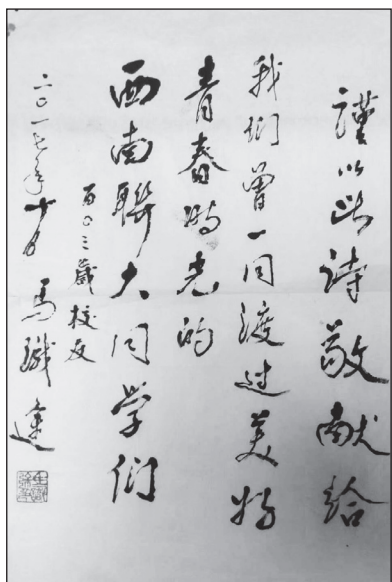 謹以此诗敬献给
我们曾一同渡过美好
青春時光的
西南聯大同学们
百〇三歲校友
二〇一七年十月 馬識途